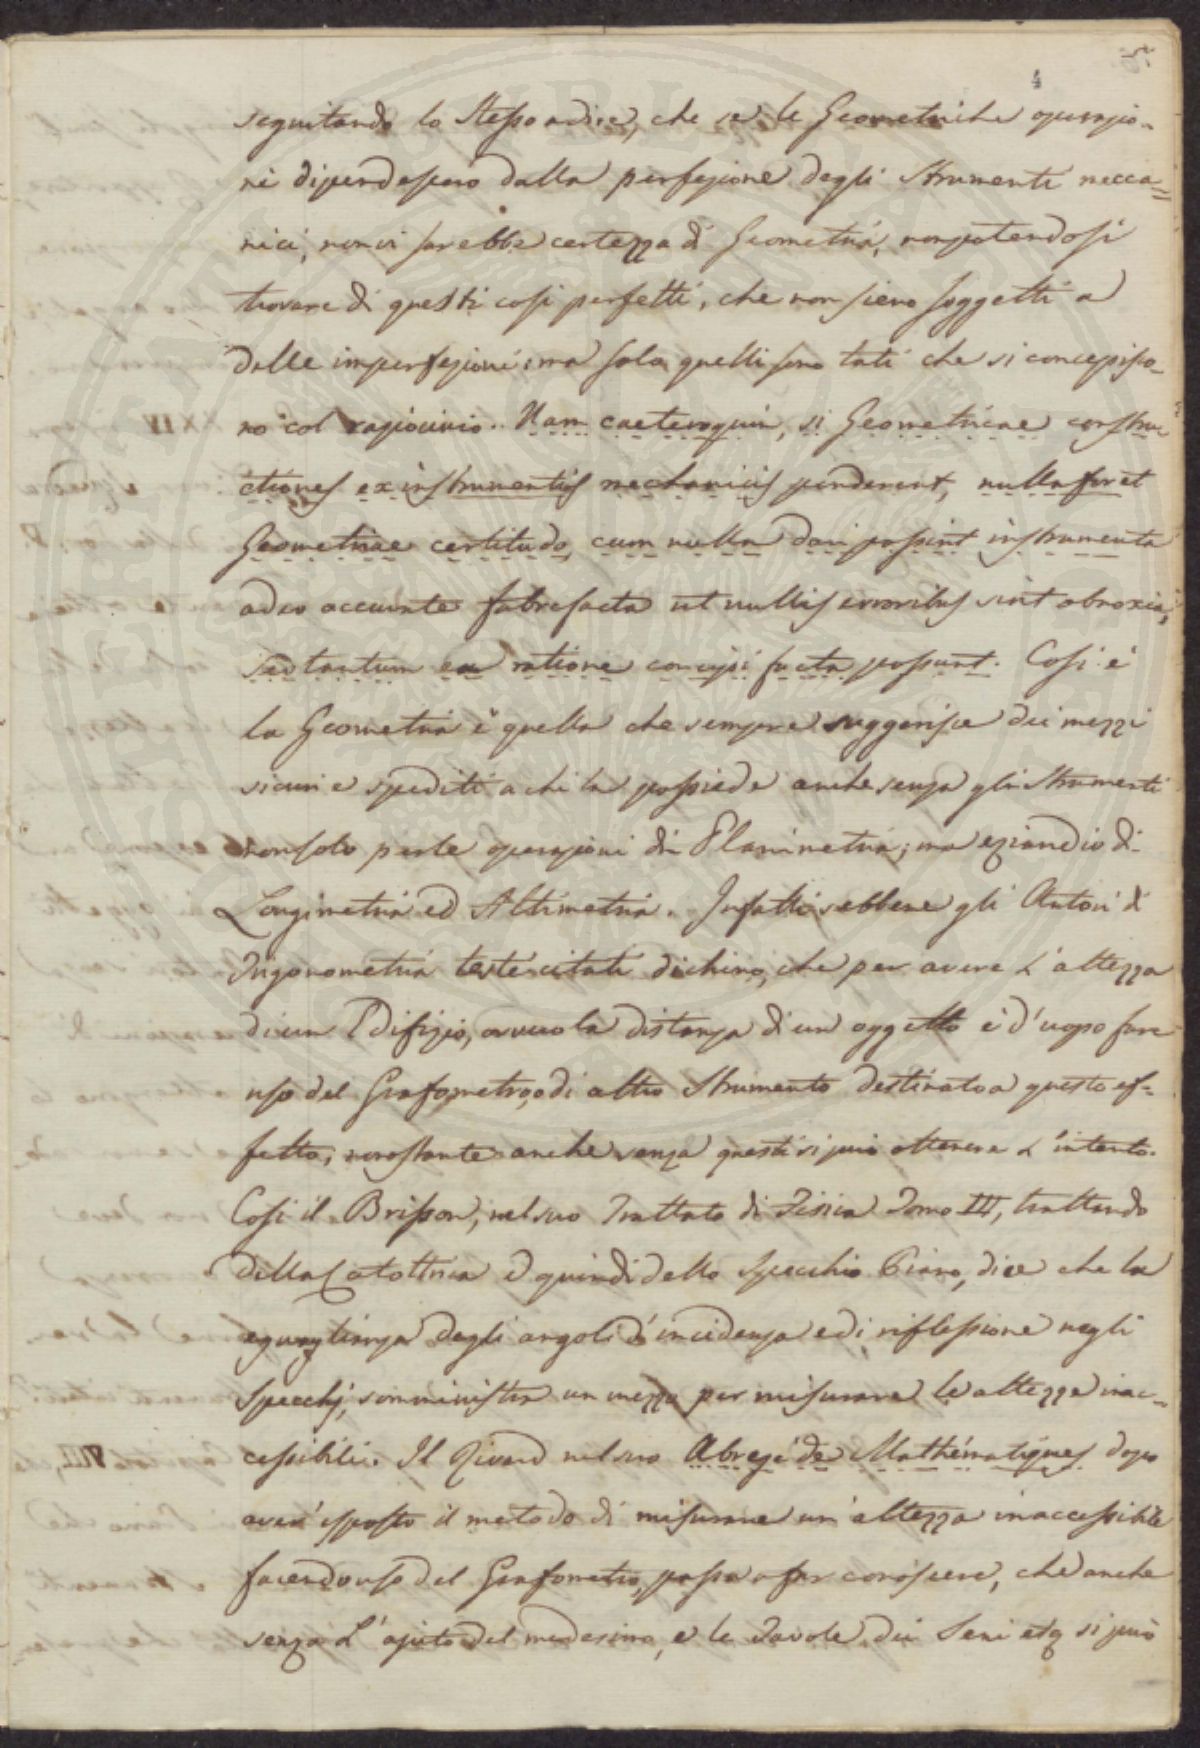 4
seguitando lo stesso a dire, che se le Geometriche operazio-
ni dipendessero dalla perfezione degli Strumenti mecca=
nici, non vi sarebbe certezza di Geometria, non potendosi
trovare di questi così perfetti, che non sieno soggetti a
delle imperfezioni; ma solo quelli sono tali che si concepisco-
no col raziocinio. Nam caeteroquin, si Geometricae constru-
ctiones ex instrumentis mechanicis penderent, nulla foret
Geometriae certitudo, cum nulla dari possint instrumenta
adeo accurate fabrefacta ut nullis erroribus sint obnoxia,
sed tantum ea ratione concipi facta possunt. Così è
la Geometria è quella che sempre suggerisce dei mezzi
sicuri e spediti a chi la possiede anche senza gli Strumenti
non solo per le operazioni di Planimetria; ma eziandio di
Longimetria ed Altimetria. Infatti sebbene gli Autori di
Trigonometria testè citati dichino, che per avere l'altezza
di un Edifizio, ovvero la distanza di un oggetto è d'uopo fare
uso del Grafometro, o di altro Strumento destinato a questo ef-
fetto; nonostante anche senza questi si può ottenere l'intento.
Così il Brisson, nel suo Trattato di Fisica Tomo III, trattando
della Catottrica e quindi dello Specchio Piano, dice che la
eguaglianza degli angoli d'incidenza e di riflessione negli
Specchj, somministra un mezzo per misurare le altezze inac=
cessibili. Il Rivard nel suo Abregé de Mathématiques dopo
aver esposto il metodo di misurare un'altezza inaccessibile
facendo uso del Grafometro, passa a far conoscere, che anche
senza l'ajuto del medesimo, e le Tavole dei Seni etc si può